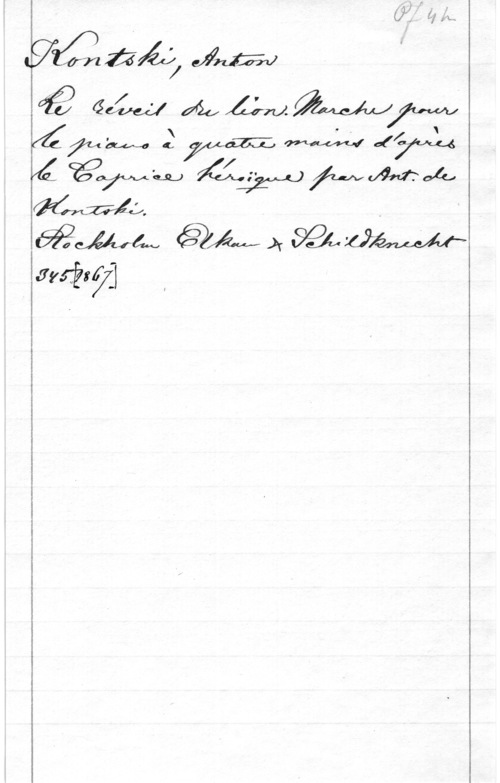 Pf 4 h
Kontski, Anton
Le réveil du lion. Marche pour
le piano à quatre mains d'après
le Caprice héroïque par Ant. de
Kontski.
Stockholm Elkan & Schildknecht
345 [1867]